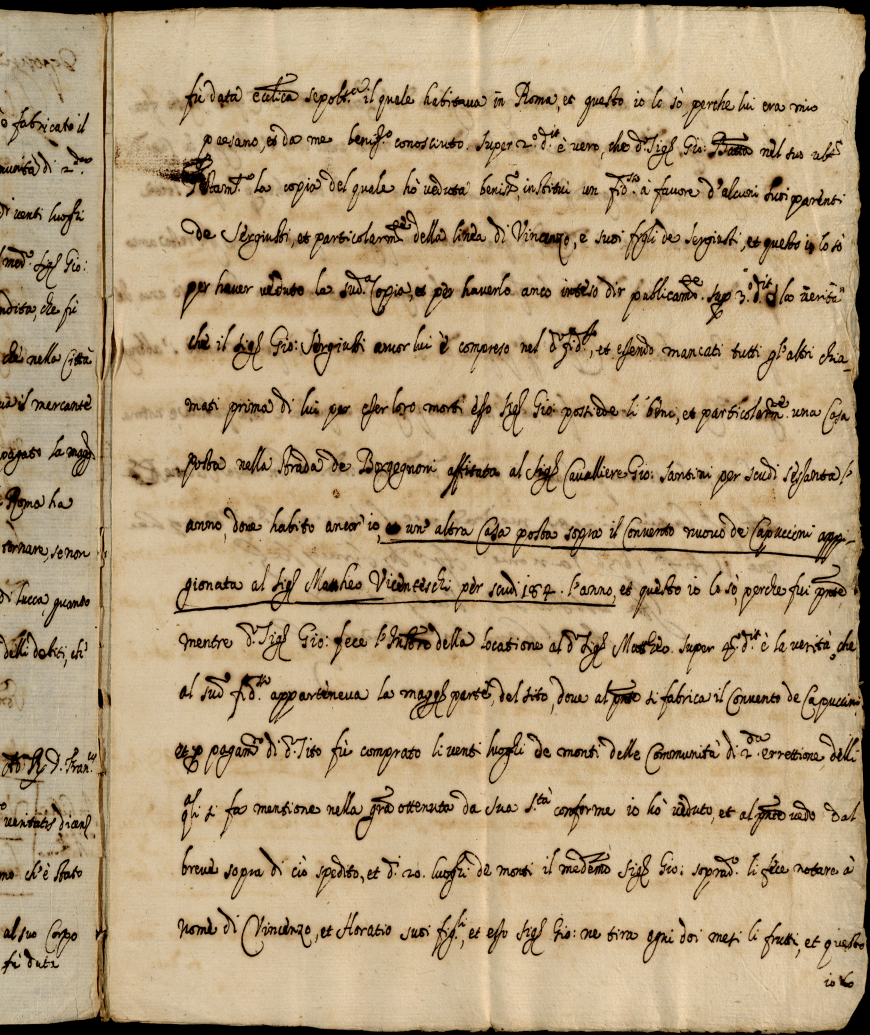 o fabricato il
munità di 2.da
di venti luoghi
med.o Sig.r Gio:
ndita, che fù
chè nella Città
il mercante
pagato la magg.r
Roma ha
tornare, se non
di lucca quando
delli debiti, ch'
D. Fran.co
veritatis dicend.
mo ch'è stato
al suo Corpo
fù data
fù data eccl.ica sepolt.ra il quale habitava in Roma, et questo io lo sò perche lui era mio
paesano, et da me beniss.o conosciuto. Super 2.o d.it è vero, che d.o Sig.r Gio: Batta nel suo ult.o
testam.to la copia del quale hò veduta beniss.o, instituì un fid.so à favore d'alcuni suoi parenti
de Sergiusti, et particolarm.te della linea di Vincenzo, e suoi figli de Sergiusti, et questo io lo sò
per haver veduto la sud.a Copia, et per haverlo anco inteso dir publicam.te. Sup. 3.o d.it è la verità
chè il Sig.r Gio: Sergiusti ancor lui è compreso nel d.o fid.so, et essendo mancati tutti gl'altri chia-
mati prima di lui per esser loro morti esso Sig.r Gio: possiede li beni, et particolarm.te una Casa
posta nella Strada de Borgognoni affittata al Sig.r Cavalliere Gio: Santini per scudi sessanta l'
anno, dove habito ancor io, un'altra Casa posta sopra il Convento nuovo de Capuccini appi-
gionata al Sig.r Mattheo Vicenteschi per scudi 184. l'anno, et questo io lo sò, perche fui pnte
mentre d.o Sig.r Gio: fece l'Instro della locatione al d.o Sig.r Mattheo. Super 4.o d.it è la verità, che
al sud.o fid.so apparteneva la magg.r parte del sito, dove al pnte si fabrica il Convento de Capuccini
et p pagam.to di d.o sito fù comprato li venti luoghi de monti delle Communità di 2.da errettione, delli
q.li si fa mentione nella gra ottenuta da sua S.tà conforme io hò veduto, et al pnte vedo dal
breve sopra di ciò spedito, et d.i 20. luoghi de monti il medemo Sig.r Gio: soprad.o li fece notare à
nome di Vincenzo, et Horatio suoi figl.i, et esso Sig.r Gio: ne tira ogni doi mesi li frutti, et questo
io lo